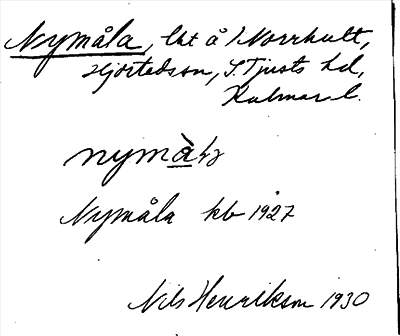 Nymåla, lht å Norrhult,
Hjorteds sn, S. Tjusts hd,
Kalmar l.
nymà̱lɑ
Nymåla kb 1927
Nils Henrikson 1930